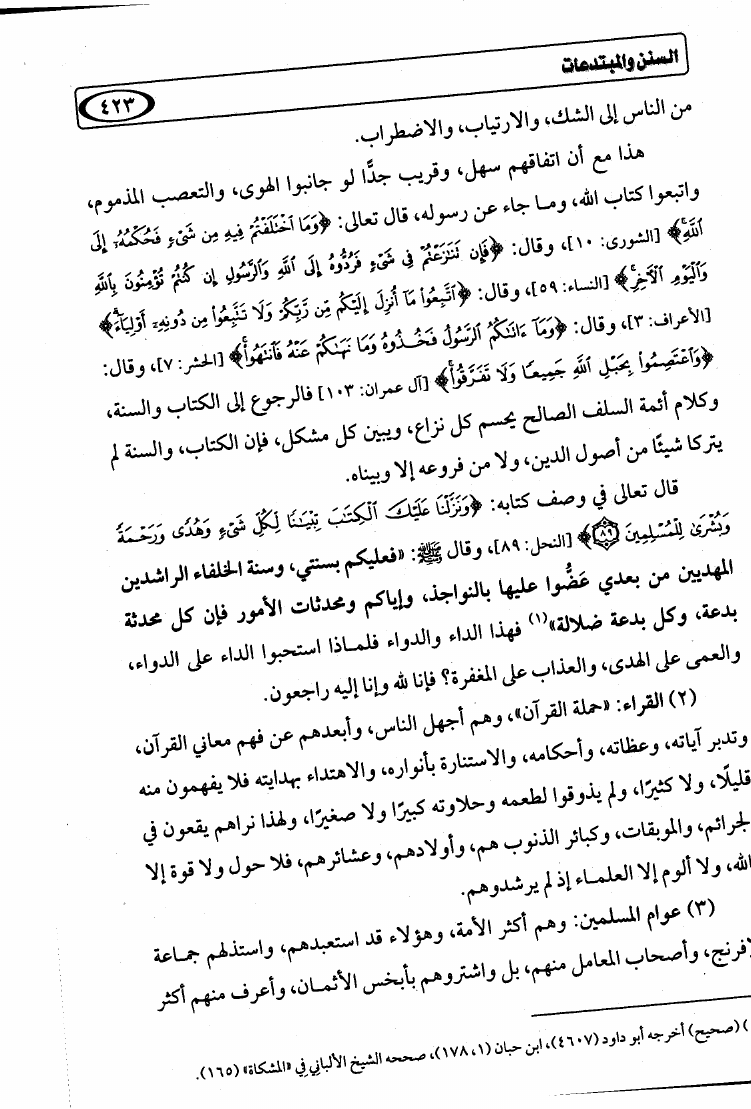 السنن والمبتدعات
٤٢٣
من الناس إلى الشك، والارتياب، والاضطراب.
هذا مع أن اتفاقهم سهل، وقريب جدًّا لو جانبوا الهوى، والتعصب المذموم،
واتبعوا كتاب الله، وما جاء عن رسوله، قال تعالى: ﴿وَمَا اخْتَلَفْتُمْ فِيهِ مِن شَيْءٍ فَحُكْمُهُ إِلَى
اللَّهِ﴾ [الشورى: ١٠]، وقال: ﴿فَإِن تَنَازَعْتُمْ فِي شَيْءٍ فَرُدُّوهُ إِلَى اللَّهِ وَالرَّسُولِ إِن كُنتُمْ تُؤْمِنُونَ بِاللَّهِ
وَالْيَوْمِ الْآخِرِ﴾ [النساء: ٥٩]، وقال: ﴿اتَّبِعُوا مَا أُنزِلَ إِلَيْكُم مِّن رَّبِّكُمْ وَلَا تَتَّبِعُوا مِن دُونِهِ أَوْلِيَاءَ﴾
[الأعراف: ٣]، وقال: ﴿وَمَا ءَاتَاكُمُ الرَّسُولُ فَخُذُوهُ وَمَا نَهَاكُمْ عَنْهُ فَانتَهُوا﴾ [الحشر: ٧]، وقال:
﴿وَاعْتَصِمُوا بِحَبْلِ اللَّهِ جَمِيعًا وَلَا تَفَرَّقُوا﴾ [آل عمران: ١٠٣] فالرجوع إلى الكتاب والسنة،
وكلام أئمة السلف الصالح يحسم كل نزاع، ويبين كل مشكل، فإن الكتاب، والسنة لم
يتركا شيئًا من أصول الدين، ولا من فروعه إلا وبيناه.
قال تعالى في وصف كتابه: ﴿وَنَزَّلْنَا عَلَيْكَ الْكِتَابَ تِبْيَانًا لِّكُلِّ شَيْءٍ وَهُدًى وَرَحْمَةً
وَبُشْرَى لِلْمُسْلِمِينَ ٨٩﴾ [النحل: ٨٩]، وقال ﷺ: «فعليكم بسنتي، وسنة الخلفاء الراشدين
المهديين من بعدي عَضُّوا عليها بالنواجذ، وإياكم ومحدثات الأمور فإن كل محدثة
بدعة، وكل بدعة ضلالة»(١) فهذا الداء والدواء فلماذا استحبوا الداء على الدواء،
والعمى على الهدى، والعذاب على المغفرة؟ فإنا لله وإنا إليه راجعون.
(٢) القراء: «حملة القرآن»، وهم أجهل الناس، وأبعدهم عن فهم معاني القرآن،
وتدبر آياته، وعظاته، وأحكامه، والاستنارة بأنواره، والاهتداء بهدايته فلا يفهمون منه
قليلًا، ولا كثيرًا، ولم يذوقوا لطعمه وحلاوته كبيرًا ولا صغيرًا، ولهذا نراهم يقعون في
لجرائم، والموبقات، وكبائر الذنوب هم، وأولادهم، وعشائرهم، فلا حول ولا قوة إلا
الله، ولا ألوم إلا العلماء إذ لم يرشدوهم.
(٣) عوام المسلمين: وهم أكثر الأمة، وهؤلاء قد استعبدهم، واستذلهم جماعة
لإفرنج، وأصحاب المعامل منهم، بل واشتروهم بأبخس الأثمان، وأعرف منهم أكثر
) (صحيح) أخرجه أبو داود (٤٦٠٧)، ابن حبان (١، ١٧٨)، صححه الشيخ الألباني في «المشكاة» (١٦٥).